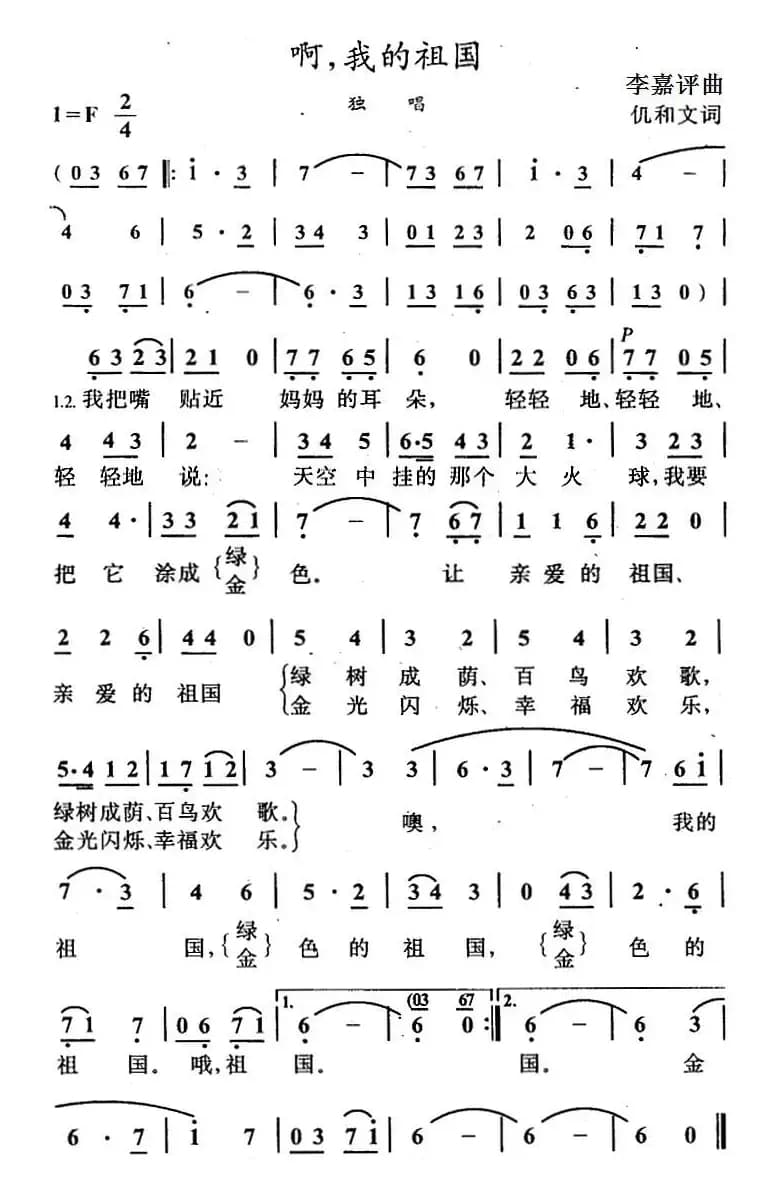 啊,我的祖国
李嘉评曲
1=F 2/4 独 唱 仉和文词
( 0 3 6 7 ‖: i · 3 | 7 – | 7 3 6 7 | i · 3 | 4 – |
4 6 | 5 · 2 | 3 4 3 | 0 1 2 3 | 2 0 6 | 7 1 7 |
0 3 7 1 | 6 – | 6 · 3 | 1 3 1 6 | 0 3 6 3 | 1 3 0 ) |
P
6 3 2 3 | 2 1 0 | 7 7 6 5 | 6 0 | 2 2 0 6 | 7 7 0 5 |
1.2. 我把嘴 贴近 妈妈 的耳 朵, 轻轻 地、轻轻 地、
4 4 3 | 2 – | 3 4 5 | 6·5 4 3 | 2 1· | 3 2 3 |
轻 轻地 说: 天空 中 挂的 那个 大 火 球,我要
4 4· | 3 3 2 1 | 7 – | 7 6 7 | 1 1 6 | 2 2 0 |
把 它 涂成{绿 金} 色。 让 亲 爱 的 祖国、
2 2 6 | 4 4 0 | 5 4 | 3 2 | 5 4 | 3 2 |
亲 爱 的 祖国 {绿 树 成 荫、百 鸟 欢 歌,
金 光 闪 烁、幸 福 欢 乐,
5·4 1 2 | 1 7 1 2 | 3 – | 3 3 | 6 · 3 | 7 – | 7 6 i |
绿树成荫、百鸟欢 歌。} 噢, 我的
金光闪烁、幸福欢 乐。
7 · 3 | 4 6 | 5 · 2 | 3 4 3 | 0 4 3 | 2 · 6 |
祖 国,{绿 金}色 的 祖 国,{绿 金} 色 的
1. (03 67 2.
7 1 7 | 0 6 7 1 | 6 – | 6 0 :‖ 6 – | 6 3 |
祖 国。哦,祖 国。 国。 金
6 · 7 | i 7 | 0 3 7 i | 6 – | 6 – | 6 0 ‖